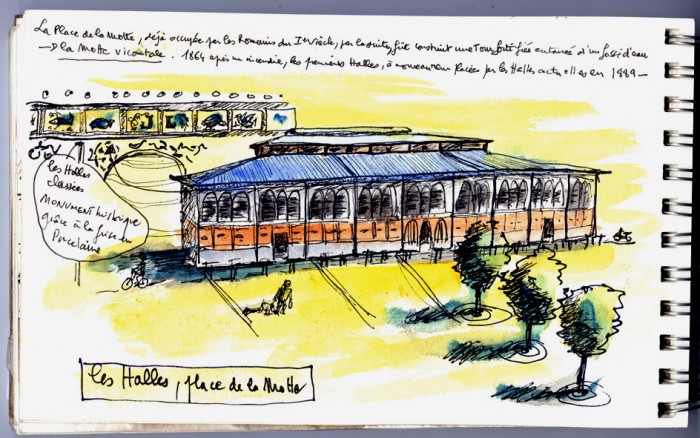 La Place de la Motte, déjà occupée par les Romains du Ier siècle, par la suite, fut construit une Tour fortifiée entourée d'un fossé d'eau
→ D la Motte vicomtale. 1864 après un incendie, les premières Halles, à nouveau remplacées par les Halles actuelles en 1889 —
les Halles
classées
MONUMENT historique
grâce à la frise en
Porcelaine
les Halles, place de la Motte